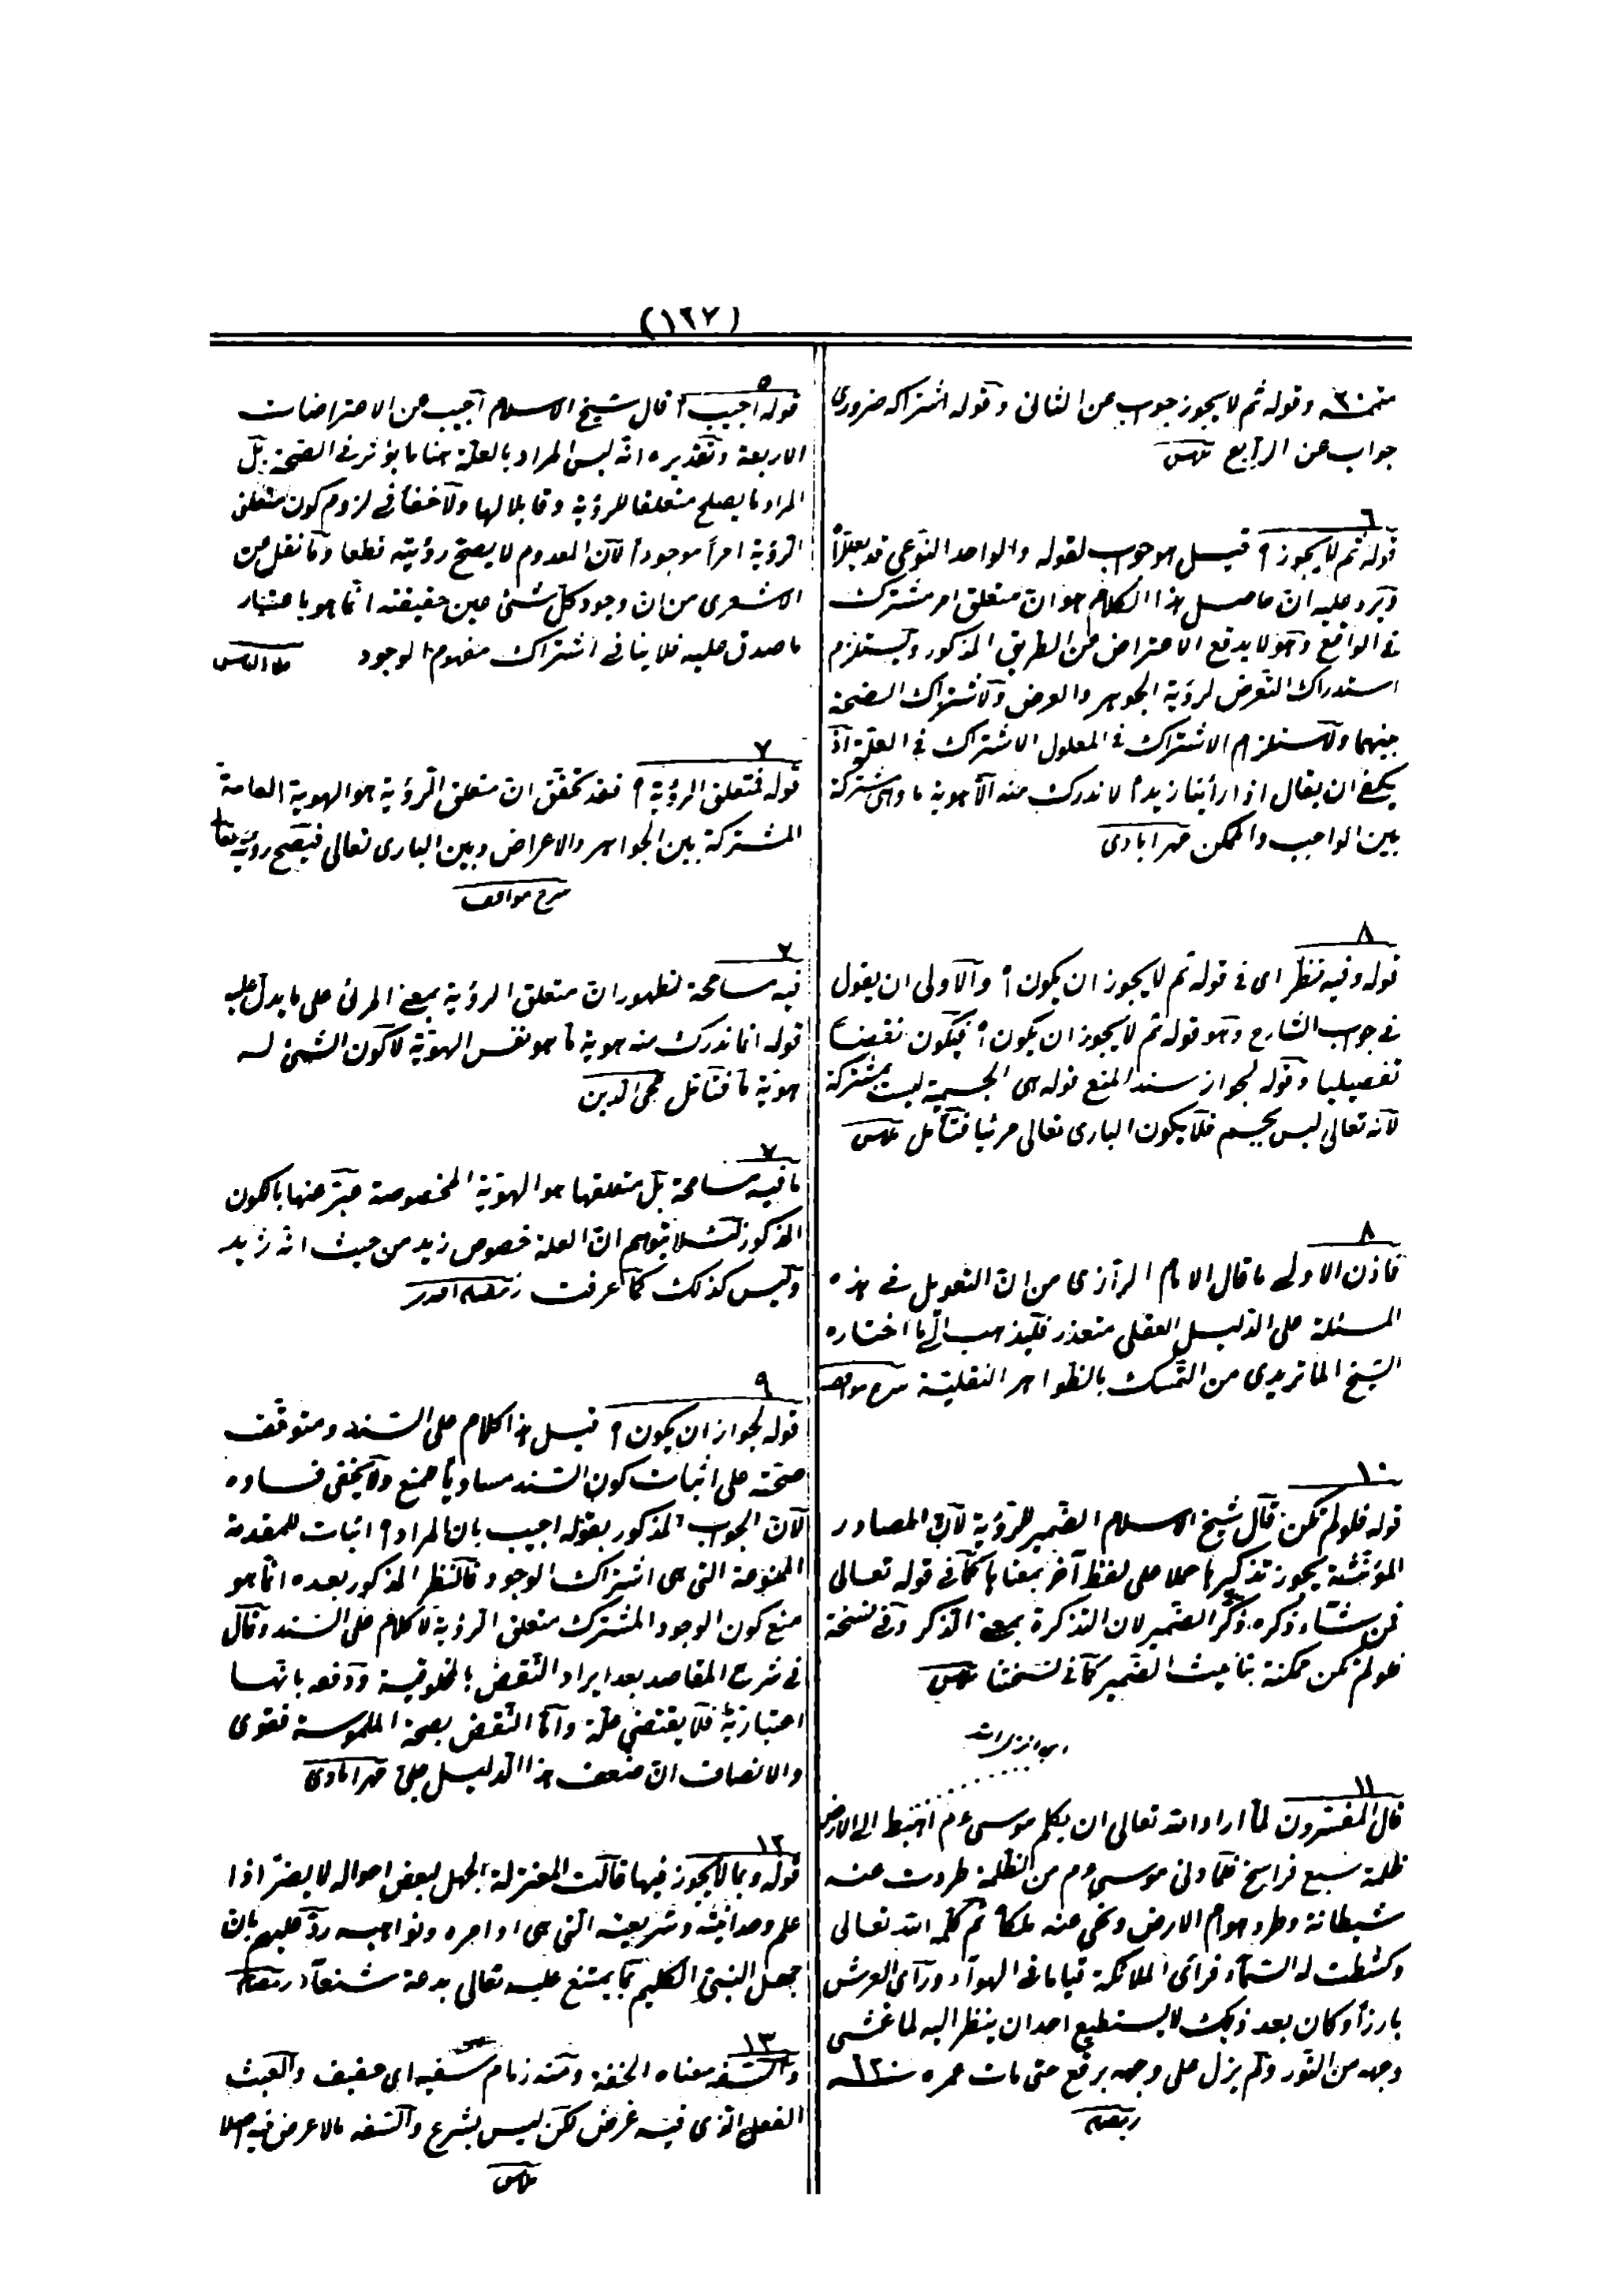 (١٦٧)
منه وقوله ثم لا يجوز جواب عن الثانى وقوله اشتراكه ضرورى
جواب عن الرابع
٦
قوله ثم لا يجوز قيل هو جواب لقوله والواحد النوعى قد يعلل
ويرد عليه ان حاصل هذا الكلام هو ان متعلق امر مشترك
فى الواقع وهو لا يدفع الاعتراض عن الطريق المذكور ويستلزم
استدراك التعرض لرؤية الجوهر والعرض ولاشتراك الصحة
بينهما ولاستلزام الاشتراك فى المعلول الاشتراك فى العلة اذ
يكفى ان يقال اذا رأينا زيدا لا ندرك منه الا هوية ما وهى مشتركة
بين الواجب والممكن
٨
قوله وفيه نظر اى فى قوله ثم لا يجوز ان يكون والاولى ان يقول
فى جواب الشارح وهو قوله ثم لا يجوز ان يكون فيكون نقضا
تفصيليا وقوله لجواز سند المنع قوله هى الجسمية ليست بمشتركة
لانه تعالى ليس بجسم فلا يكون البارى تعالى مرئيا فتأمل
٨
فاذن الاولى ما قال الامام الرازى من ان التعويل فى هذه
المسئلة على الدليل العقلى متعذر فليذهب الى ما اختاره
الشيخ الماتريدى من التمسك بالظواهر النقلية شرح مواقف
١٠
قوله فلو لم تكن قال شيخ الاسلام الضمير للرؤية لان المصادر
المؤنثة يجوز تذكيرها حملا على لفظ آخر بمعناها كما فى قوله تعالى
فمن شاء ذكره ذكر الضمير لان التذكرة بمعنى الذكر وفى نسخة
فلو لم تكن ممكنة بتأنيث الضمير كما فى نسختنا
١١
قال المفسرون لما اراد الله تعالى ان يكلم موسى ءم اهبط الى الارض
ظلمة سبع فراسخ فلما دنى موسى ءم من الظلمة طردت عنه
شيطانة وطرد هوام الارض ونحى عنه ملكا ثم كلمه الله تعالى
وكشطت له السماء فرأى الملائكة قياما فى الهواء ورآى العرش
بارزا وكان بعد ذلك لا يستطيع احد ان ينظر اليه لما غشى
وجهه من النور ولم يزل على وجهه برقع حتى مات عمره ١٢٠ سنه
رمضان
٥
قوله اجيب قال شيخ الاسلام اجيب عن الاعتراضات
الاربعة وتقديره انه ليس المراد بالعلة هنا ما يؤثر فى الصحة بل
المراد ما يصلح متعلقا للرؤية وقابلا لها ولا خفأ فى لزوم كون متعلق
الرؤية امرا موجودا لان المعدوم لا يصح رؤيته قطعا وما نقل عن
الاشعرى من ان وجود كل شئ عين حقيقته انما هو باعتبار
ما صدق عليه فلا ينافى اشتراك مفهوم الوجود
٧
قوله فمتعلق الرؤية فقد تحقق ان متعلق الرؤية هو الهوية العامة
المشتركة بين الجواهر والاعراض وبين البارى تعالى فيصح رؤيته
شرح مواقف
٧
فيه مسامحة لظهور ان متعلق الرؤية بمعنى المرئى على ما يدل عليه
قوله انما ندرك منه هوية ما هو نفس الهوية لا كون الشئ له
هوية ما فتأمل محى الدين
٧
ما فيه مسامحة بل متعلقها هو الهوية المخصوصة عبر عنها بالكون
المذكور لئلا يتوهم ان العلة خصوص زيد من حيث انه زيد
وليس كذلك كما عرفت
٩
قوله لجواز ان يكون قيل هذا كلام على السند ومتوقف
صحته على اثبات كون السند مساويا للمنع ولا يخفى فساده
لان الجواب المذكور بقوله اجيب بان المراد اثبات للمقدمة
الممنوعة التى هى اشتراك الوجود فالنظر المذكور بعده انما هو
منع كون الوجود المشترك متعلق الرؤية لا كلام على السند وقال
فى شرح المقاصد بعد ايراد النقض بالمخلوقية ودفعه بانها
اعتبارية فلا يقتضى علة واما النقض بصحة الملموسة فقوى
والانصاف ان ضعف هذا الدليل جلى
١٢
قوله وبما لا يجوز فيها قالت المعتزلة الجهل لبعض احواله لا يضر اذا
علم وحدانيته وشريعته التى هى اوامره ونواهيه رد عليهم بان
جعل النبى الكليم بما يمتنع عليه تعالى بدعة شنعاء رمضان
١٣
والسفه معناه الخفة ومنه زمام سفيه اى خفيف والعبث
الفعل الذى فيه غرض لكن ليس بشرع والسفه ما لا غرض فيه اصلا